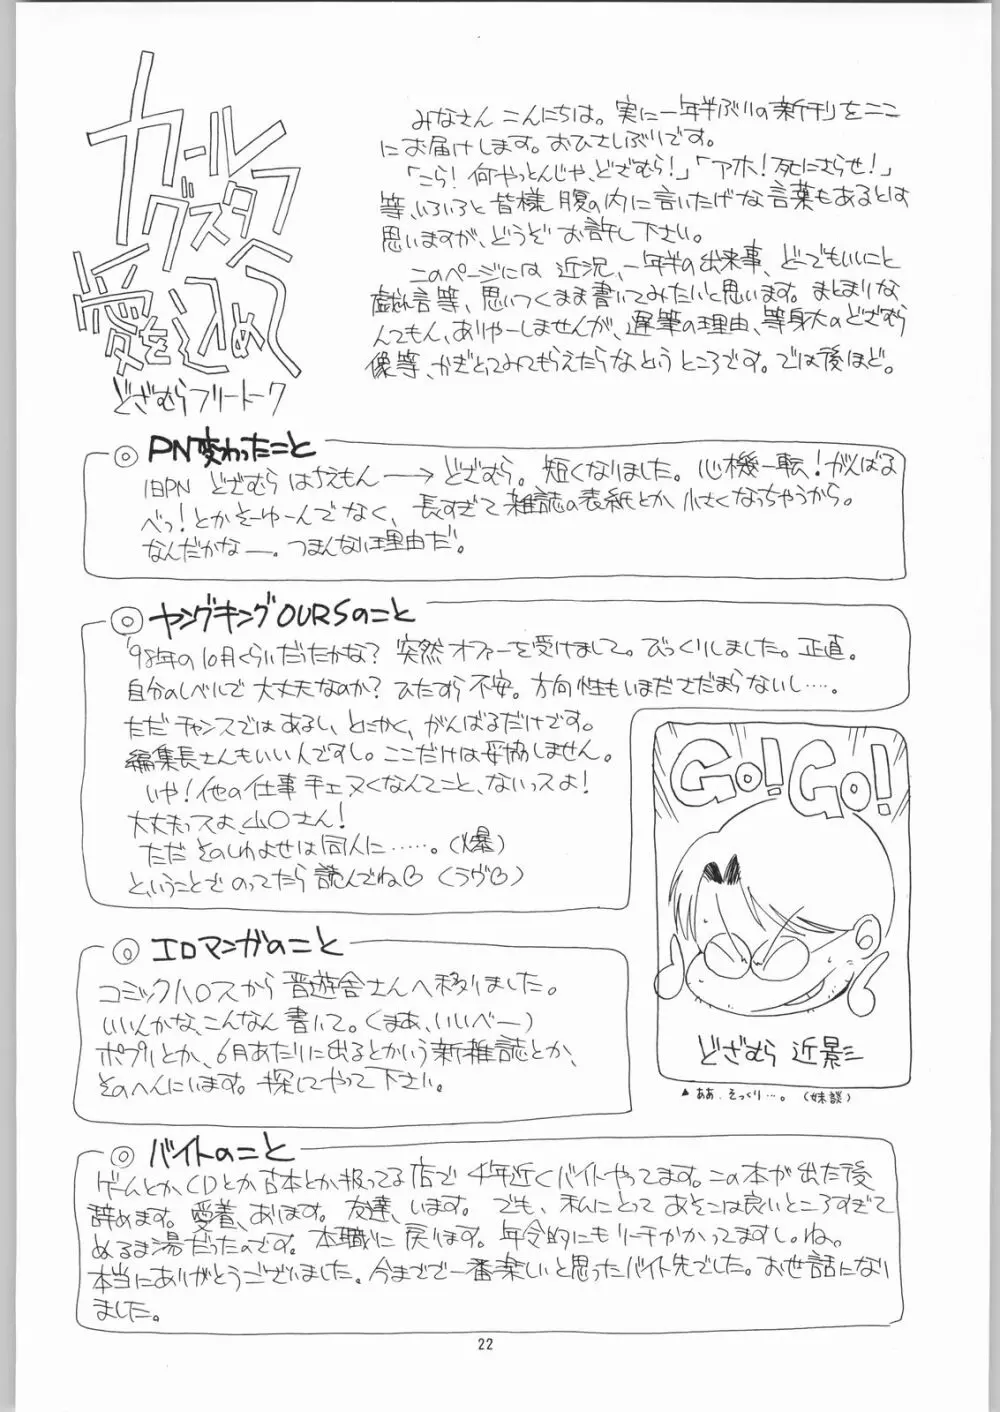 カール
グスタフへ
愛を込めて
どざむらフリートーク
みなさん こんにちは。実に一年半ぶりの新刊をここ
にお届けします。おひさしぶりです。
「こら！何やっとんじゃ、どざむら！」「アホ！死にさらせ！」
等、いろいろと皆様腹の内に言いたげな言葉もあるとは
思いますが、どうぞ お許し下さい。
このページには 近況、一年半の出来事、どーでもいいこと
戯れ言等、思いつくまま書いてみたいと思います。まとまりな
んてもん、ありゃーしませんが、遅筆の理由、等身大のどざむら
像等、かぎとってみてもらえたらなというところです。では後ほど。
◎ PN変わったこと
旧PN どざむら はちえもん ─→ どざむら。短くなりました。心機一転！がんばる
べっ！とかそーゆーんでなく、長すぎて雑誌の表紙とか、小さくなっちゃうから。
なんだかなー。つまんない理由だ。
◎ ヤングキングOURSのこと
'98年の10月くらいだったかな？突然オファーを受けまして。びっくりしました。正直。
自分のレベルで大丈夫なのか？ひたすら不安。方向性もいまださだまらないし…。
ただ チャンスではあるし、とにかく、がんばるだけです。
編集長さんもいい人ですし。ここだけは妥協しません。
いや！他の仕事手ェヌくなんてこと、ないっスよ！
大丈夫っスよ、山○さん！
ただ そのしわよせは同人に……。（爆）
ということで のってたら 読んでね♡（ラヴ♡）
Go! Go!
どざむら 近影
▲ああ、そっくり…。（妹談）
◎ エロマンガのこと
コミックハロスから 晋遊舎さんへ移りました。
いいんかな、こんなん書いて。（まあ、いいべー）
ポプリとか、6月あたりに出るとかいう新雑誌とか、
そのへんにいます。探してやって下さい。
◎ バイトのこと
ゲームとかCDとか古本とか扱ってる店で 4年近くバイトやってます。この本が出た後
辞めます。愛着、あります。友達、います。でも、私にとって あそこは良いところすぎて
ぬるま湯だったのです。本職に戻ります。年令的にもリーチかかってますし。ね。
本当にありがとうございました。今までで一番楽しいと思ったバイト先でした。お世話になり
ました。
22